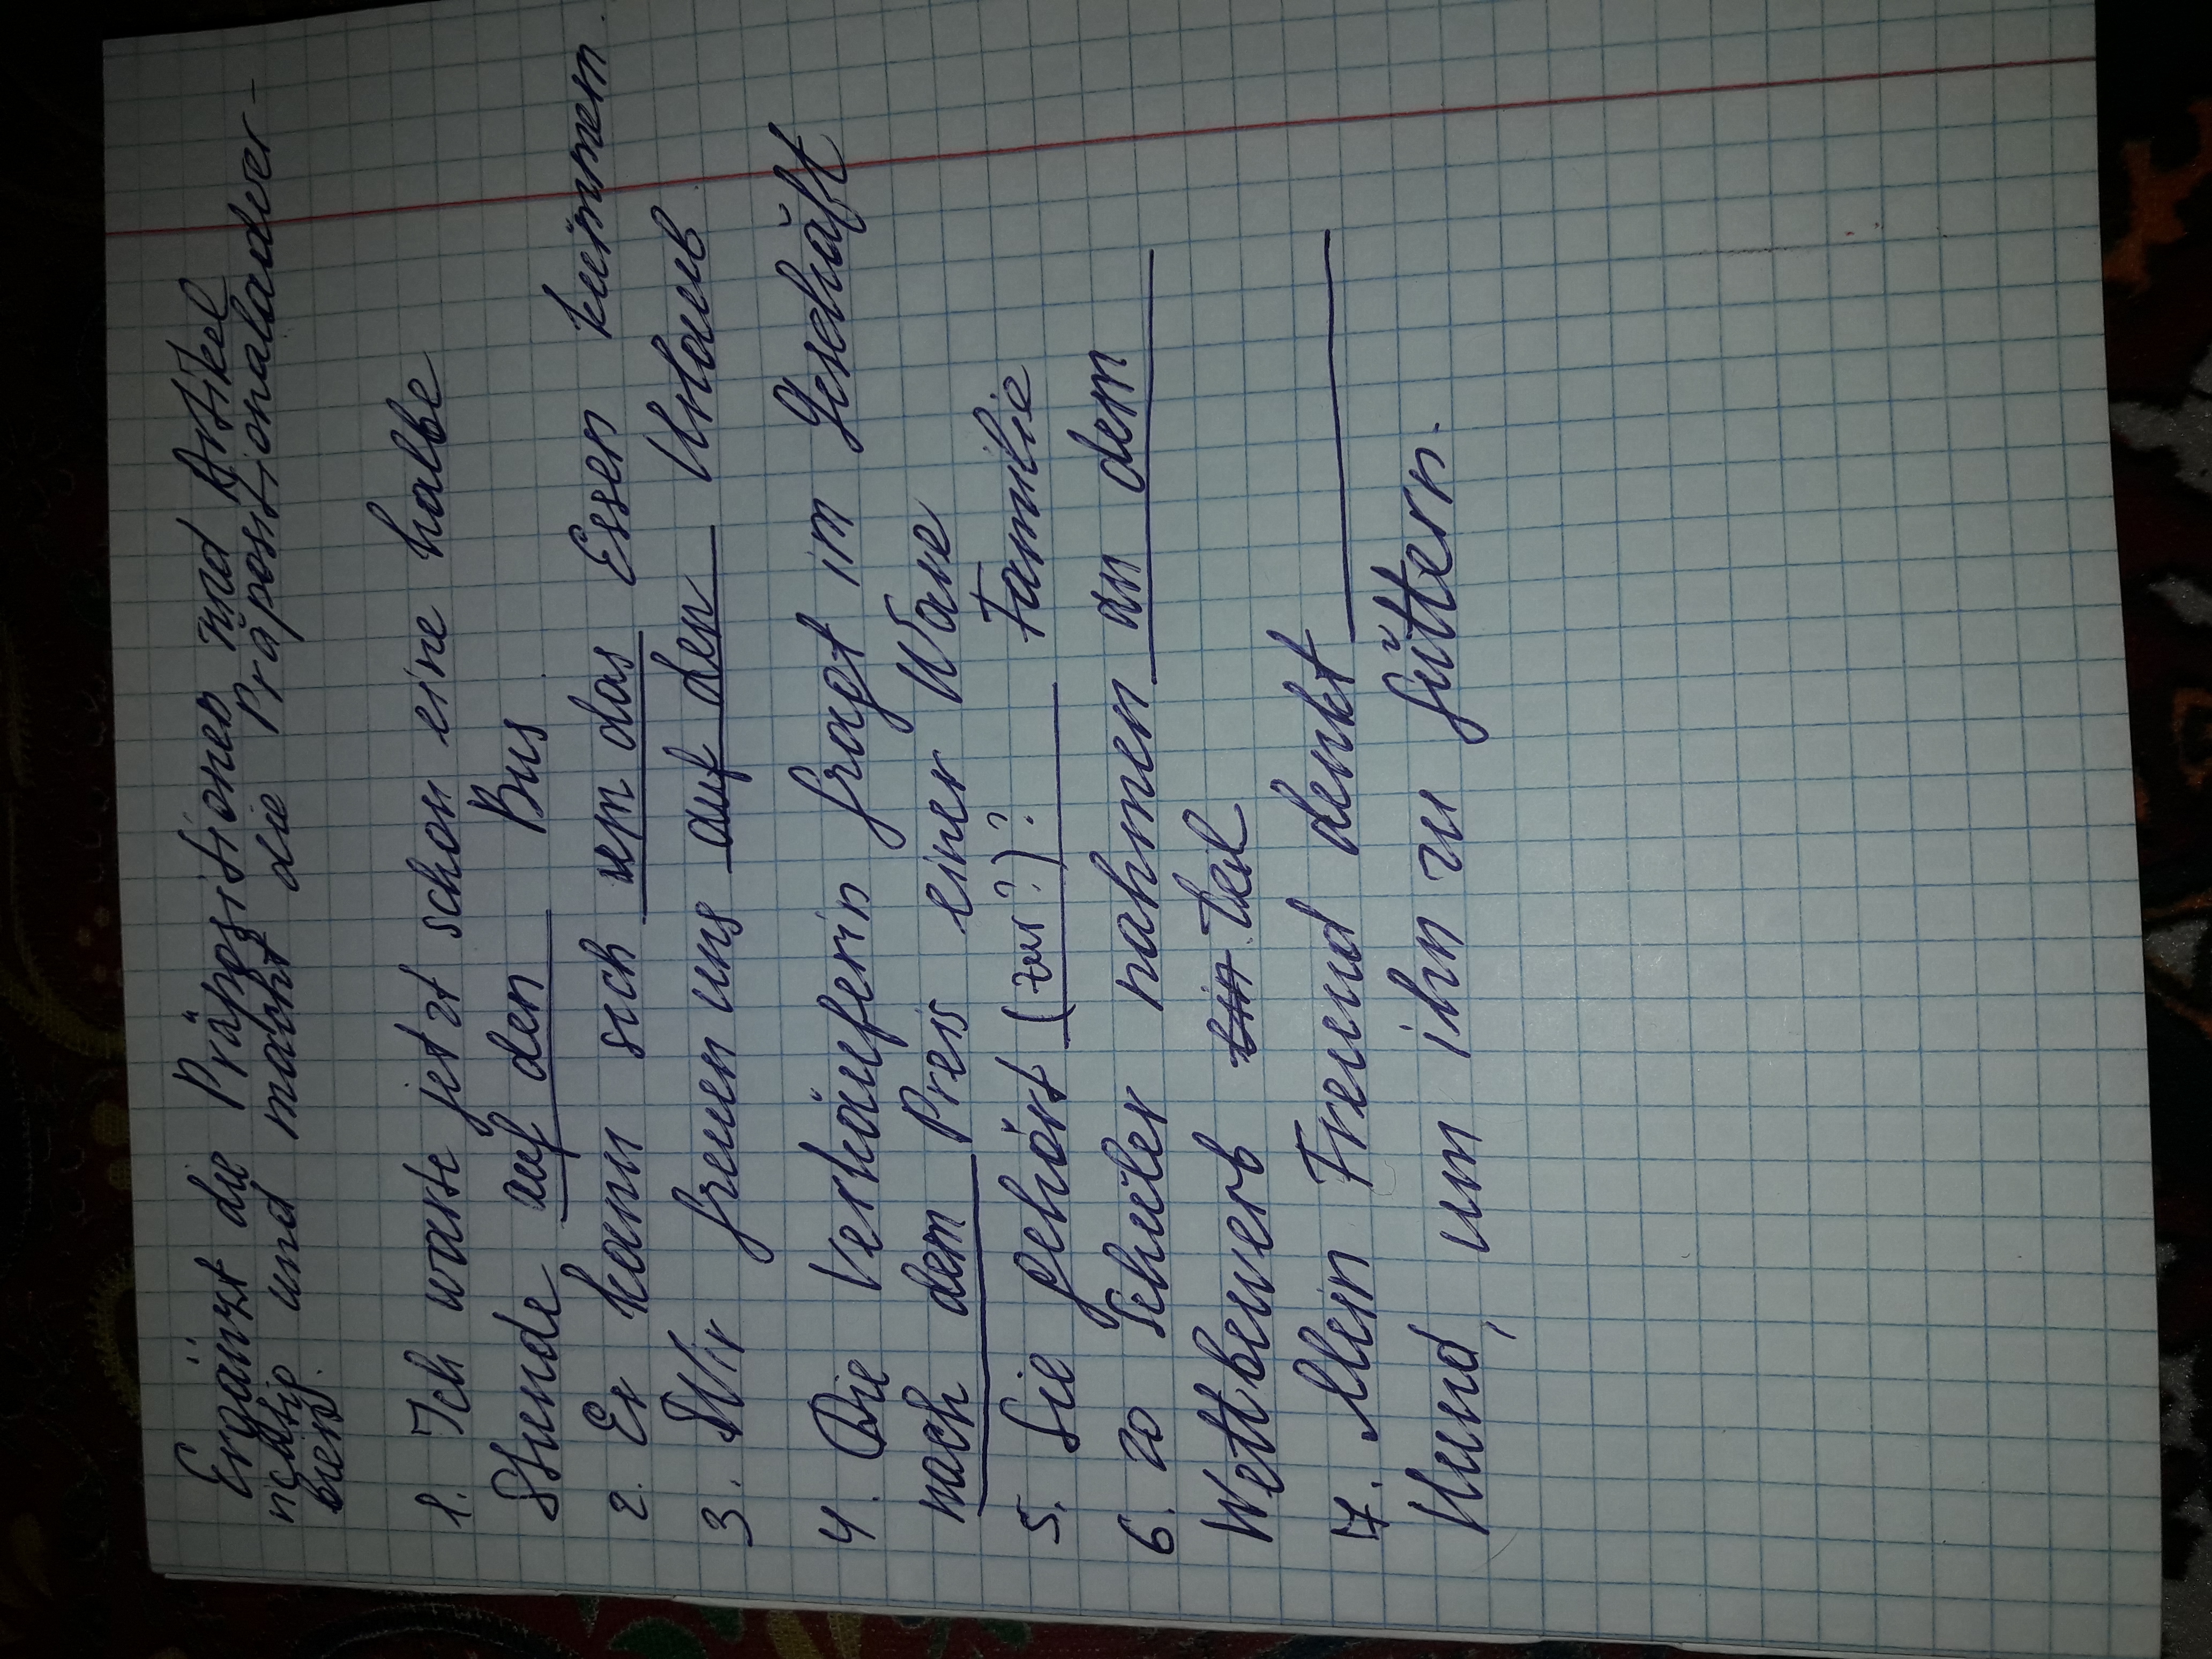 Ergänzt die Präpositionen und Artikel
richtig und macht die Präpositionalander-
bien.
1. Ich warte jetzt schon eine halbe
Stunde auf den Bus
2. Er kann sich um das Essen kümmern.
3. Wir freuen uns auf den Urlaub
4. Die Verkäuferin fragt im Geschäft
nach dem Preis einer Ware
5. Sie gehört (zur?)? Familie
6. 20 Schüler nahmen an dem
Wettbewerb teil
7. Mein Freund denkt
Hund, um ihn zu füttern.